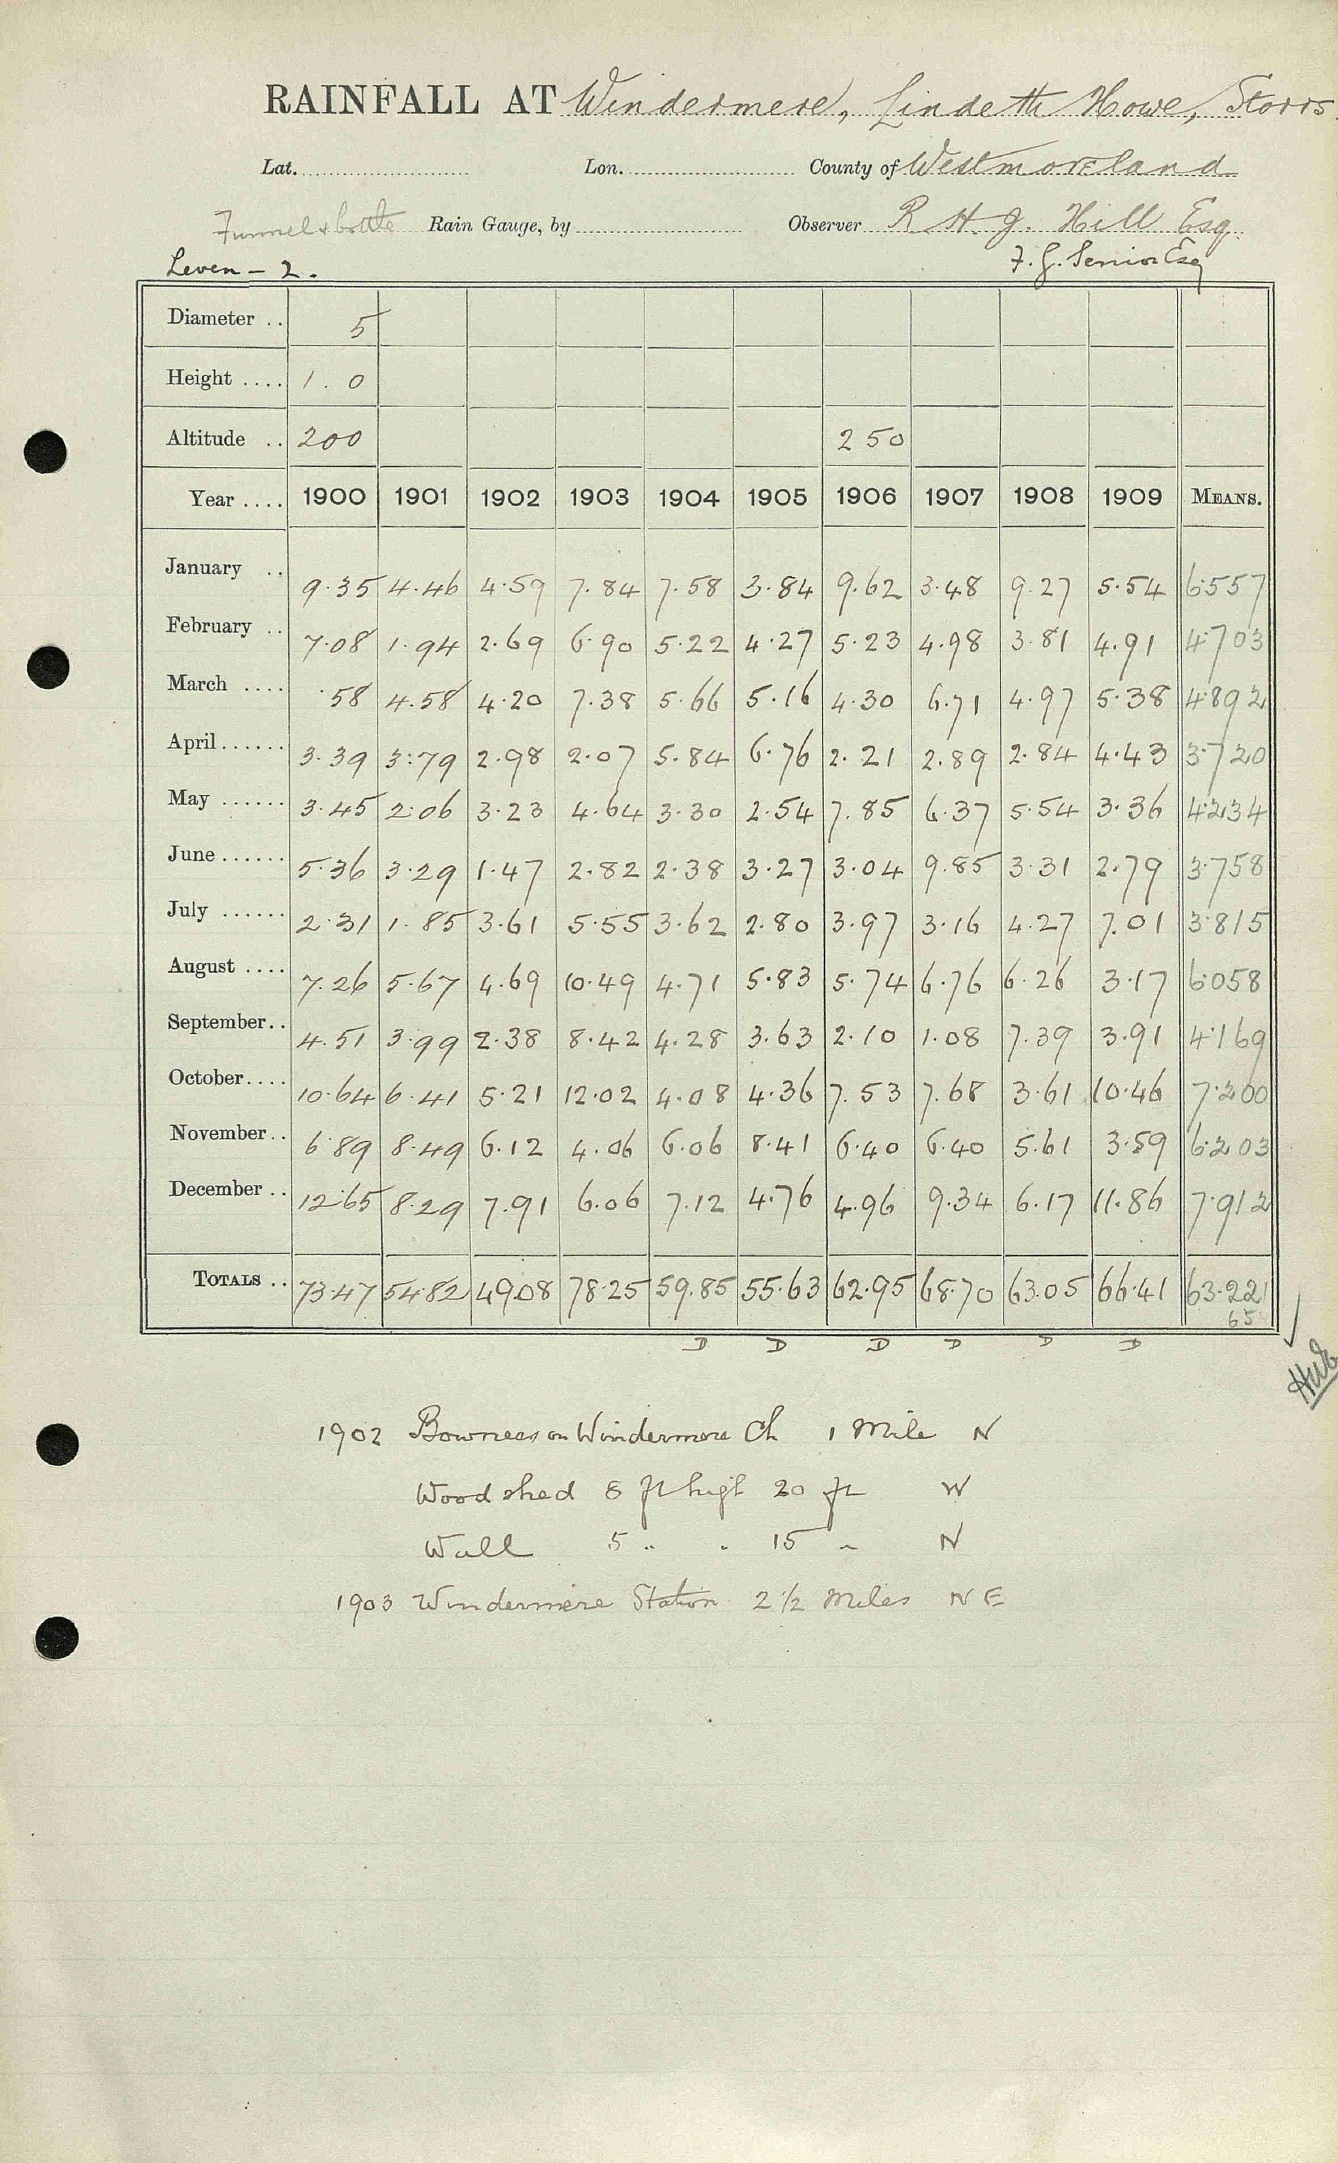 RAINFALL AT Windermere, Lindeth Howe, Storrs.
Lat. Lon. County of Westmoreland
Funnel & bottle Rain Gauge, by Observer R. H. J. Hill Esq.
Leven - 2. F. G. Senior Esq
Diameter .. 5
Height .... 1.0
Altitude .. 200 250
Year .... 1900 1901 1902 1903 1904 1905 1906 1907 1908 1909 MEANS.
January .. 9.35 4.46 4.59 7.84 7.58 3.84 9.62 3.48 9.27 5.54 6.557
February .. 7.08 1.94 2.69 6.90 5.22 4.27 5.23 4.98 3.81 4.91 4.703
March .... .58 4.58 4.20 7.38 5.66 5.16 4.30 6.71 4.97 5.38 4.892
April ...... 3.39 3.79 2.98 2.07 5.84 6.76 2.21 2.89 2.84 4.43 3.720
May ...... 3.45 2.06 3.23 4.64 3.30 2.54 7.85 6.37 5.54 3.36 4.234
June ...... 5.36 3.29 1.47 2.82 2.38 3.27 3.04 9.85 3.31 2.79 3.758
July ...... 2.31 1.85 3.61 5.55 3.62 2.80 3.97 3.16 4.27 7.01 3.815
August .... 7.26 5.67 4.69 10.49 4.71 5.83 5.74 6.76 6.26 3.17 6.058
September.. 4.51 3.99 2.38 8.42 4.28 3.63 2.10 1.08 7.39 3.91 4.169
October.... 10.64 6.41 5.21 12.02 4.08 4.36 7.53 7.68 3.61 10.46 7.200
November.. 6.89 8.49 6.12 4.06 6.06 8.41 6.40 6.40 5.61 3.59 6.203
December .. 12.65 8.29 7.91 6.06 7.12 4.76 4.96 9.34 6.17 11.86 7.912
TOTALS .. 73.47 54.82 49.08 78.25 59.85 55.63 62.95 68.70 63.05 66.41 63.221
65
D D D D D D
1902 Bowness on Windermere Ch 1 Mile N
Wood shed 8 ft high 20 ft W
Wall 5 " " 15 " N
1903 Windermere Station 2 1/2 Miles N E